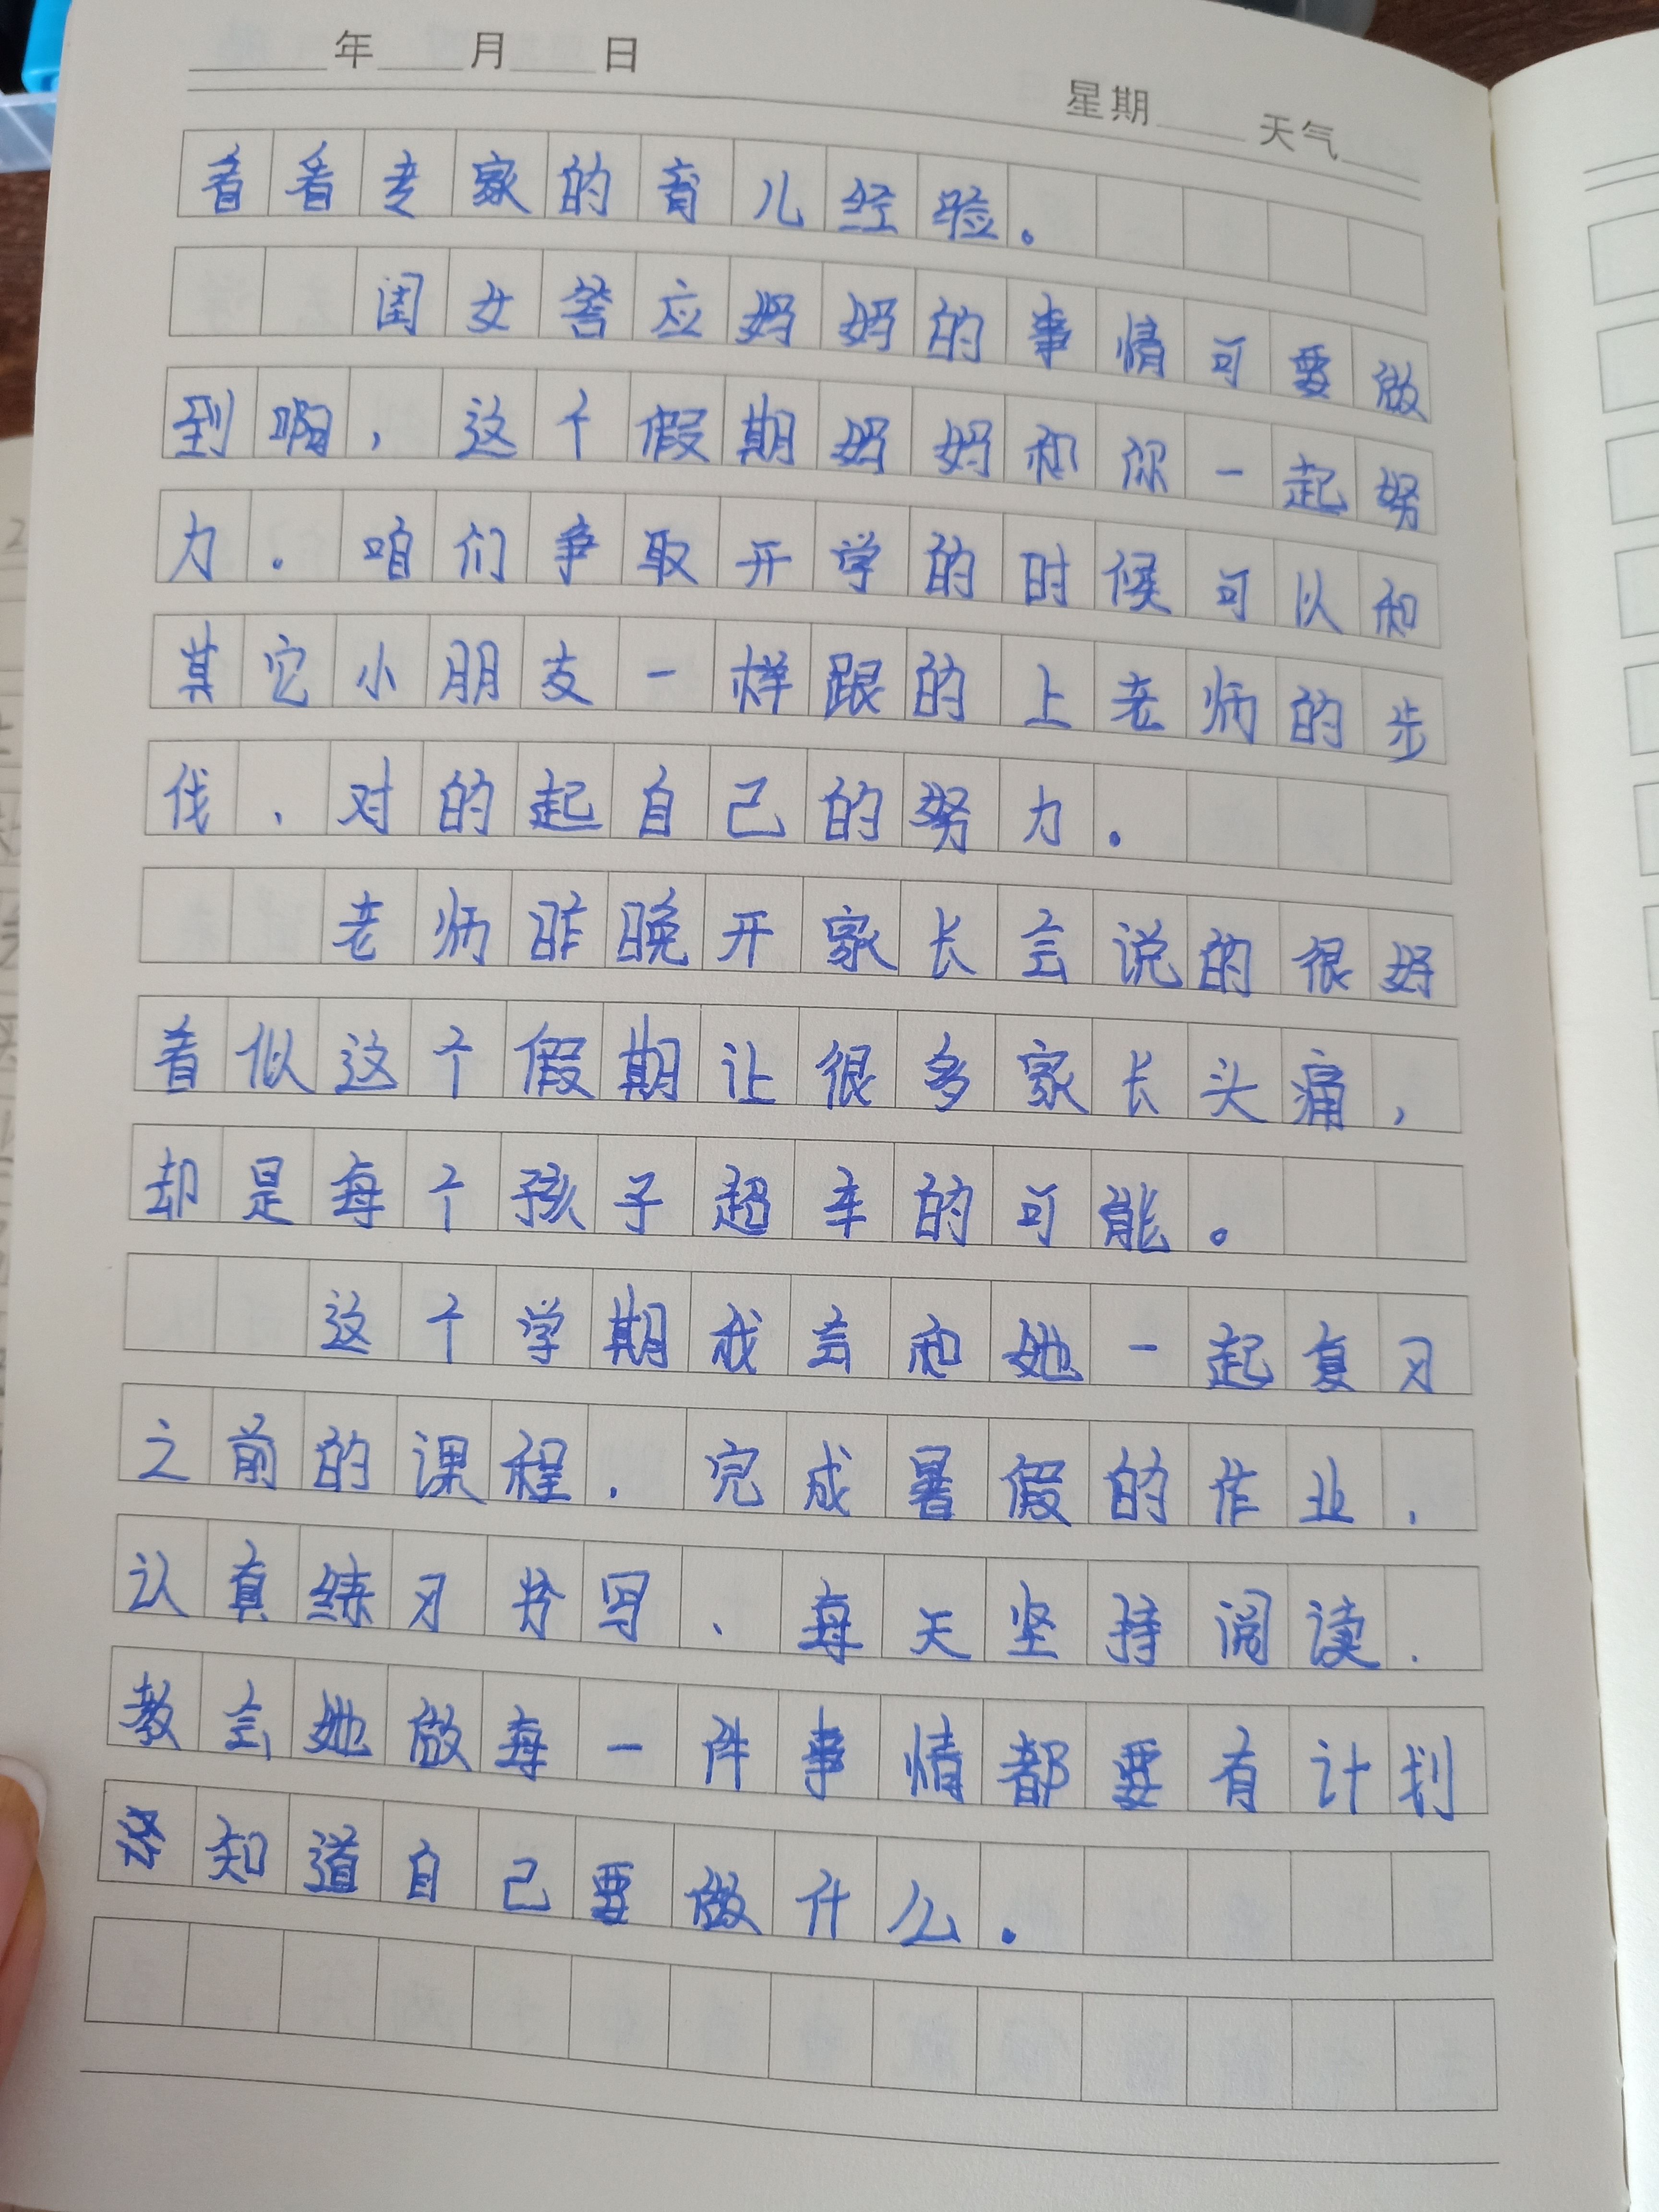 年 月 日
星期 天气
看看专家的育儿经验。
闺女答应妈妈的事情可要做
到啊，这个假期妈妈和你一起努
力。咱们争取开学的时候可以和
其它小朋友一样跟的上老师的步
伐、对的起自己的努力。
老师昨晚开家长会说的很好
看似这个假期让很多家长头痛，
却是每个孩子超车的可能。
这个学期我会和她一起复习
之前的课程．完成暑假的作业、
认真练习书写、每天坚持阅读．
教会她做每一件事情都要有计划
知道自己要做什么。